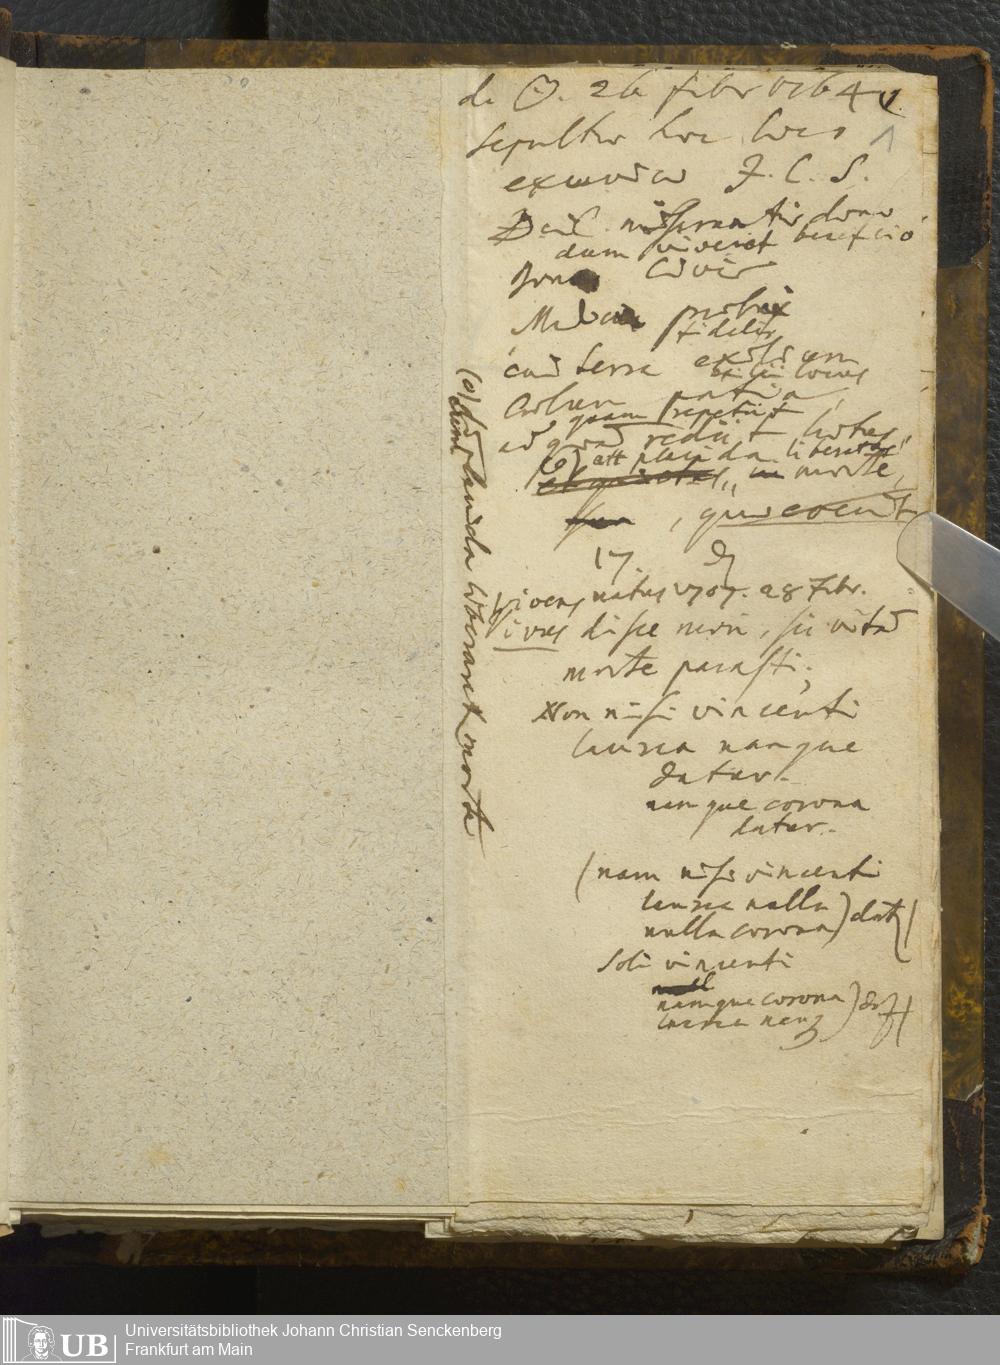 d. ☉. 26 febr 1764
1
sepultus hoc loco
exuvias J. C. S.
Dei miserantis dono
dum viveret beneficio
bonus civis
Medicus probus
fidelis
cui terra exilium
exilii locus
Coelum patria,
quam repetiit
ad quod rediit liber,
(o) placida liberatus
morte,
17. d
vivens natus 1707. 28 Febr.
Vivus disce mori, sic vitam
morte parasti;
Non nisi vincenti
laurea namque
datur.
namque corona
datur.
(nam nisi vincenti
laurea nulla
nulla corona) dat
Soli vincenti
namque corona
laurea namq
(o) dum placida liberaret morte
UB
Universitätsbibliothek Johann Christian Senckenberg
Frankfurt am Main